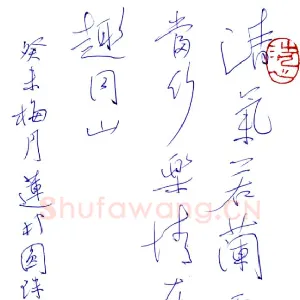 清氣若蘭
當竹樂情在
趣同山
癸未梅月蓮邨圓珠
Shufawang.CN